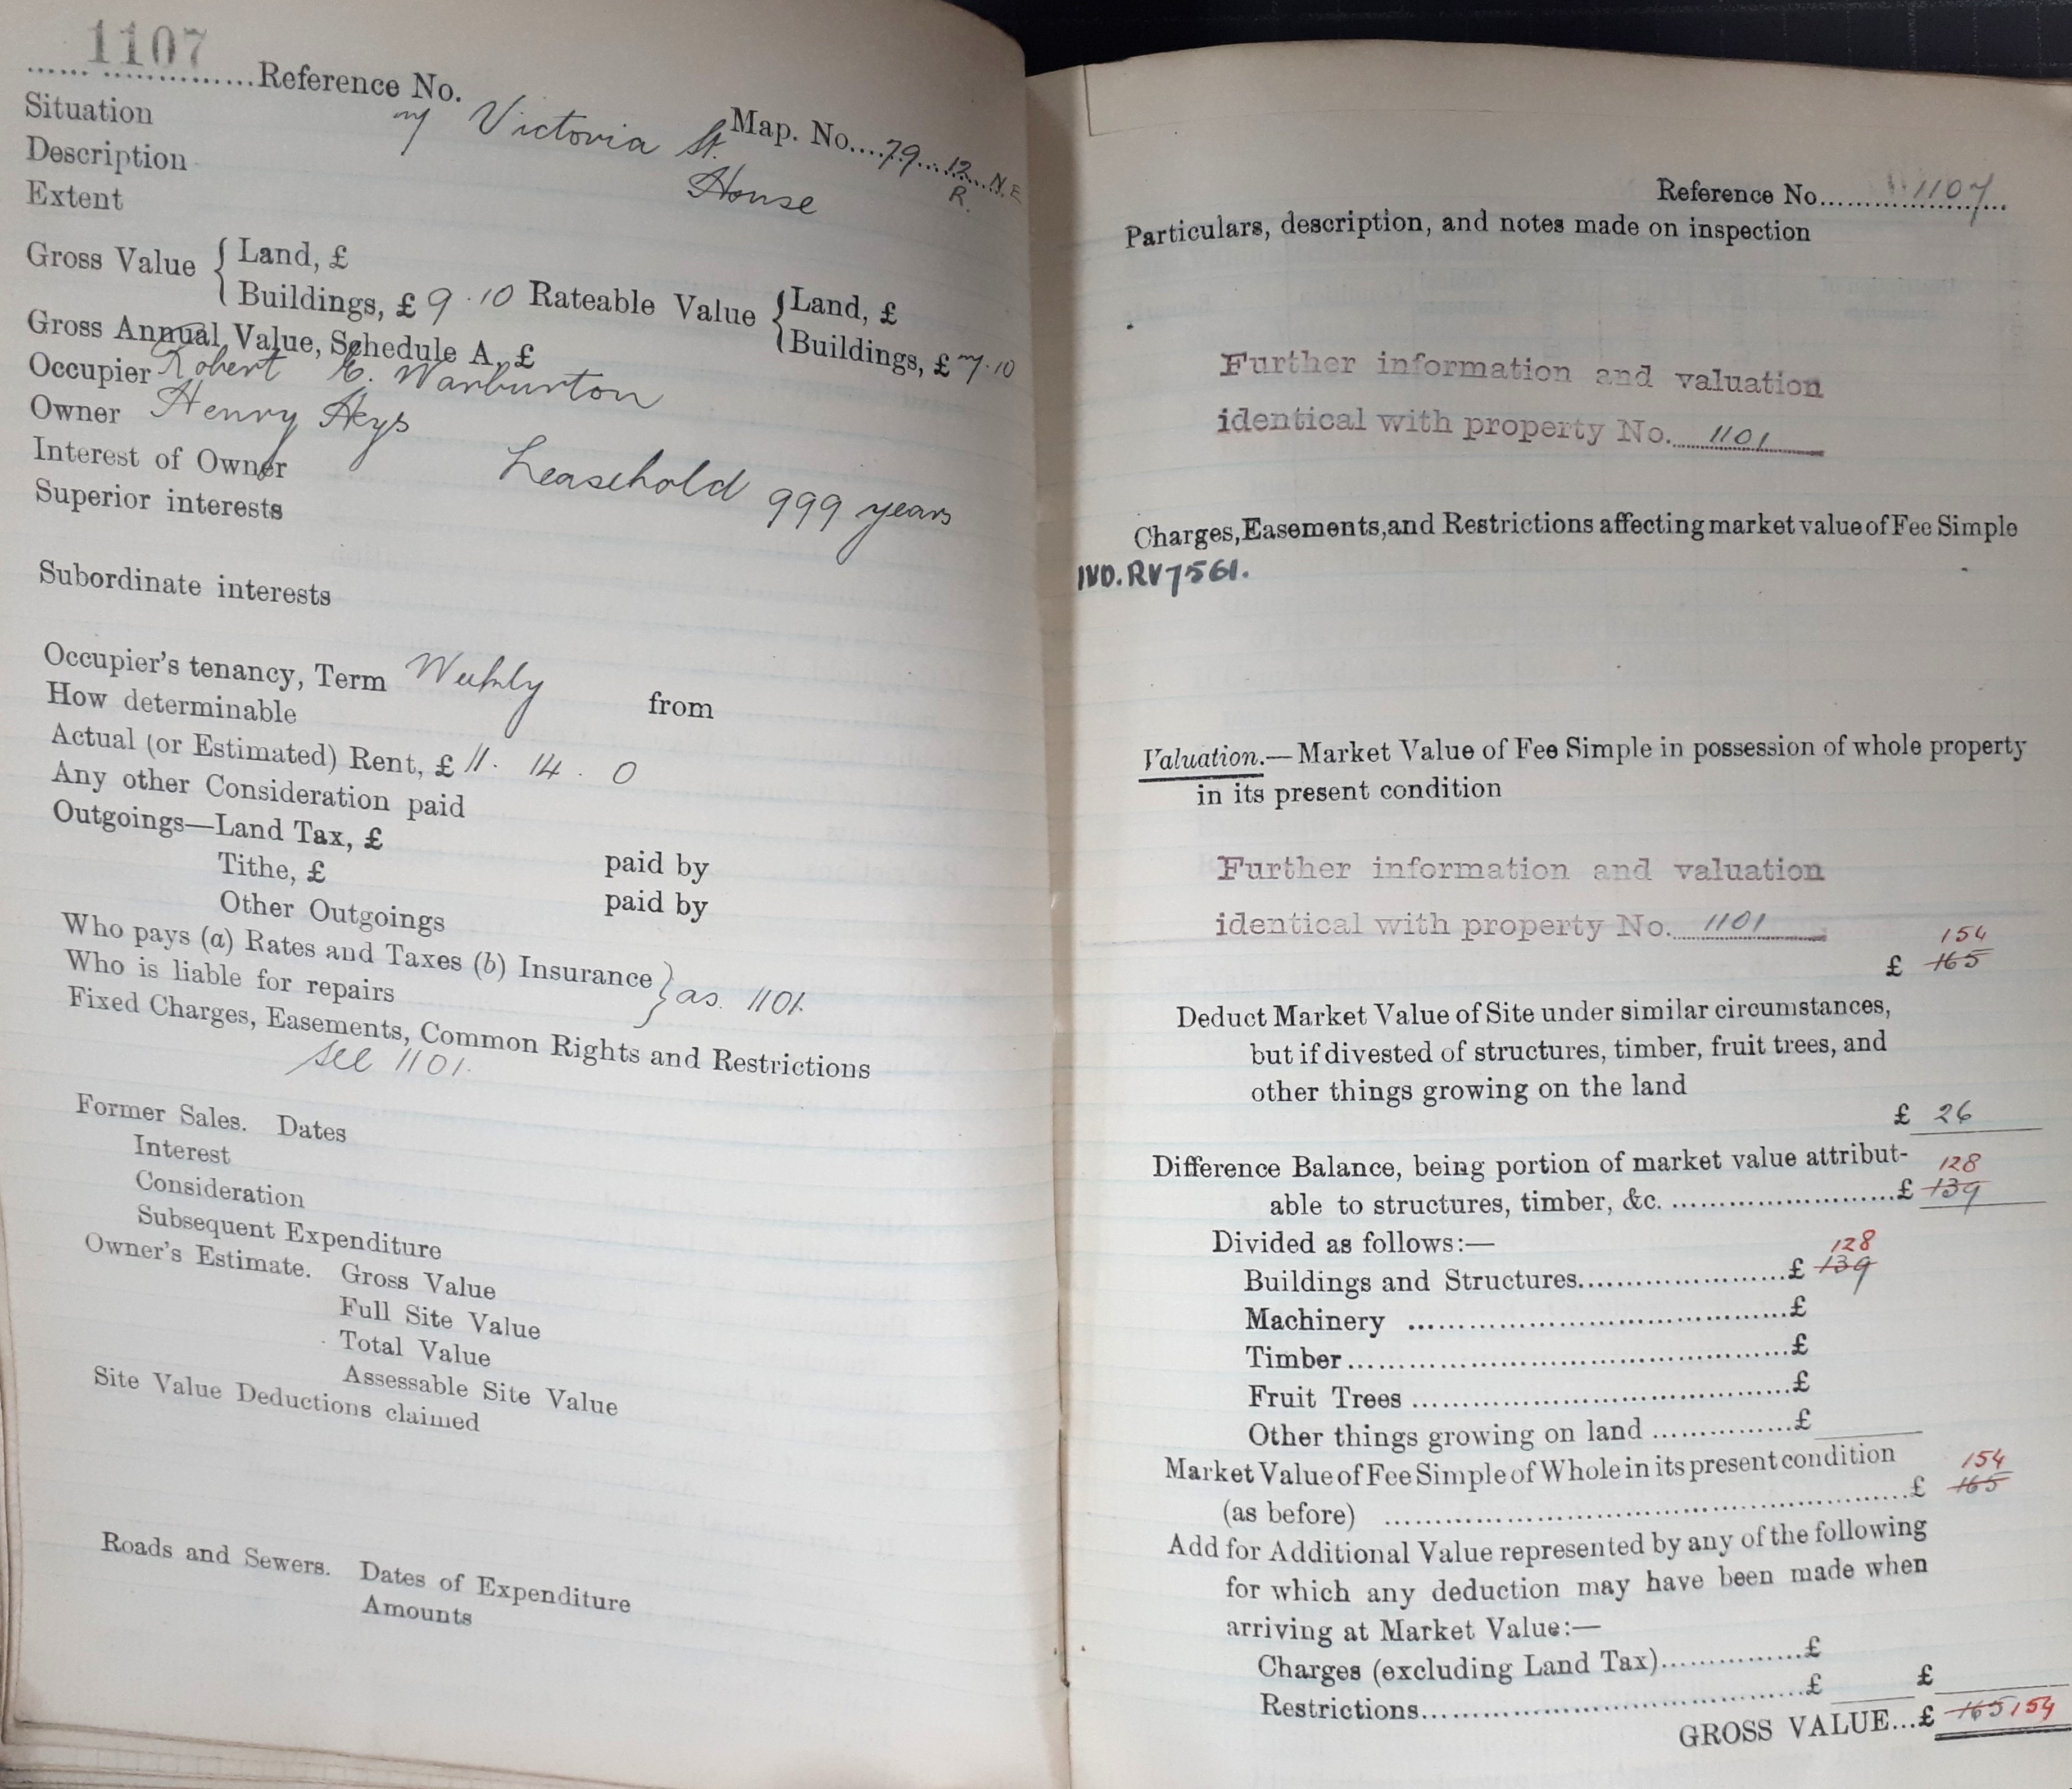 1107
...... ...............Reference No.
Map. No....79....12...N.E
R.
Situation 7 Victoria St.
Description House
Extent
Gross Value { Land, £
Buildings, £ 9.10 Rateable Value { Land, £
Buildings, £ 7.10
Gross Annual Value, Schedule A, £
Occupier Robert E. Warburton
Owner Henry Heys
Interest of Owner Leasehold 999 years
Superior interests
Subordinate interests
Occupier's tenancy, Term Weekly from
How determinable
Actual (or Estimated) Rent, £ 11. 14. 0
Any other Consideration paid
Outgoings—Land Tax, £ paid by
Tithe, £ paid by
Other Outgoings
Who pays (a) Rates and Taxes (b) Insurance
Who is liable for repairs } as. 1101.
Fixed Charges, Easements, Common Rights and Restrictions
see 1101.
Former Sales. Dates
Interest
Consideration
Subsequent Expenditure
Owner's Estimate. Gross Value
Full Site Value
Total Value
Assessable Site Value
Site Value Deductions claimed
Roads and Sewers. Dates of Expenditure
Amounts
Reference No...........1107...
Particulars, description, and notes made on inspection
Further information and valuation
identical with property No. 1101
Charges, Easements, and Restrictions affecting market value of Fee Simple
IVD. RV7561.
Valuation.—Market Value of Fee Simple in possession of whole property
in its present condition
Further information and valuation
identical with property No. 1101
154
£ 165
Deduct Market Value of Site under similar circumstances,
but if divested of structures, timber, fruit trees, and
other things growing on the land
£ 26
Difference Balance, being portion of market value attribut-
128
able to structures, timber, &c. ..........................£ 139
Divided as follows:—
128
Buildings and Structures........................£ 139
Machinery ..........................................£
Timber................................................£
Fruit Trees ..........................................£
Other things growing on land ................£
Market Value of Fee Simple of Whole in its present condition
154
(as before) ..........................................................£ 165
Add for Additional Value represented by any of the following
for which any deduction may have been made when
arriving at Market Value:—
Charges (excluding Land Tax)................£
Restrictions..........................................£ £
GROSS VALUE...£ 165 154